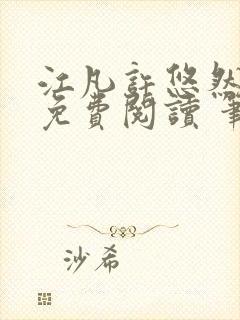 江凡許悠然
免費閱讀 筆
沙希